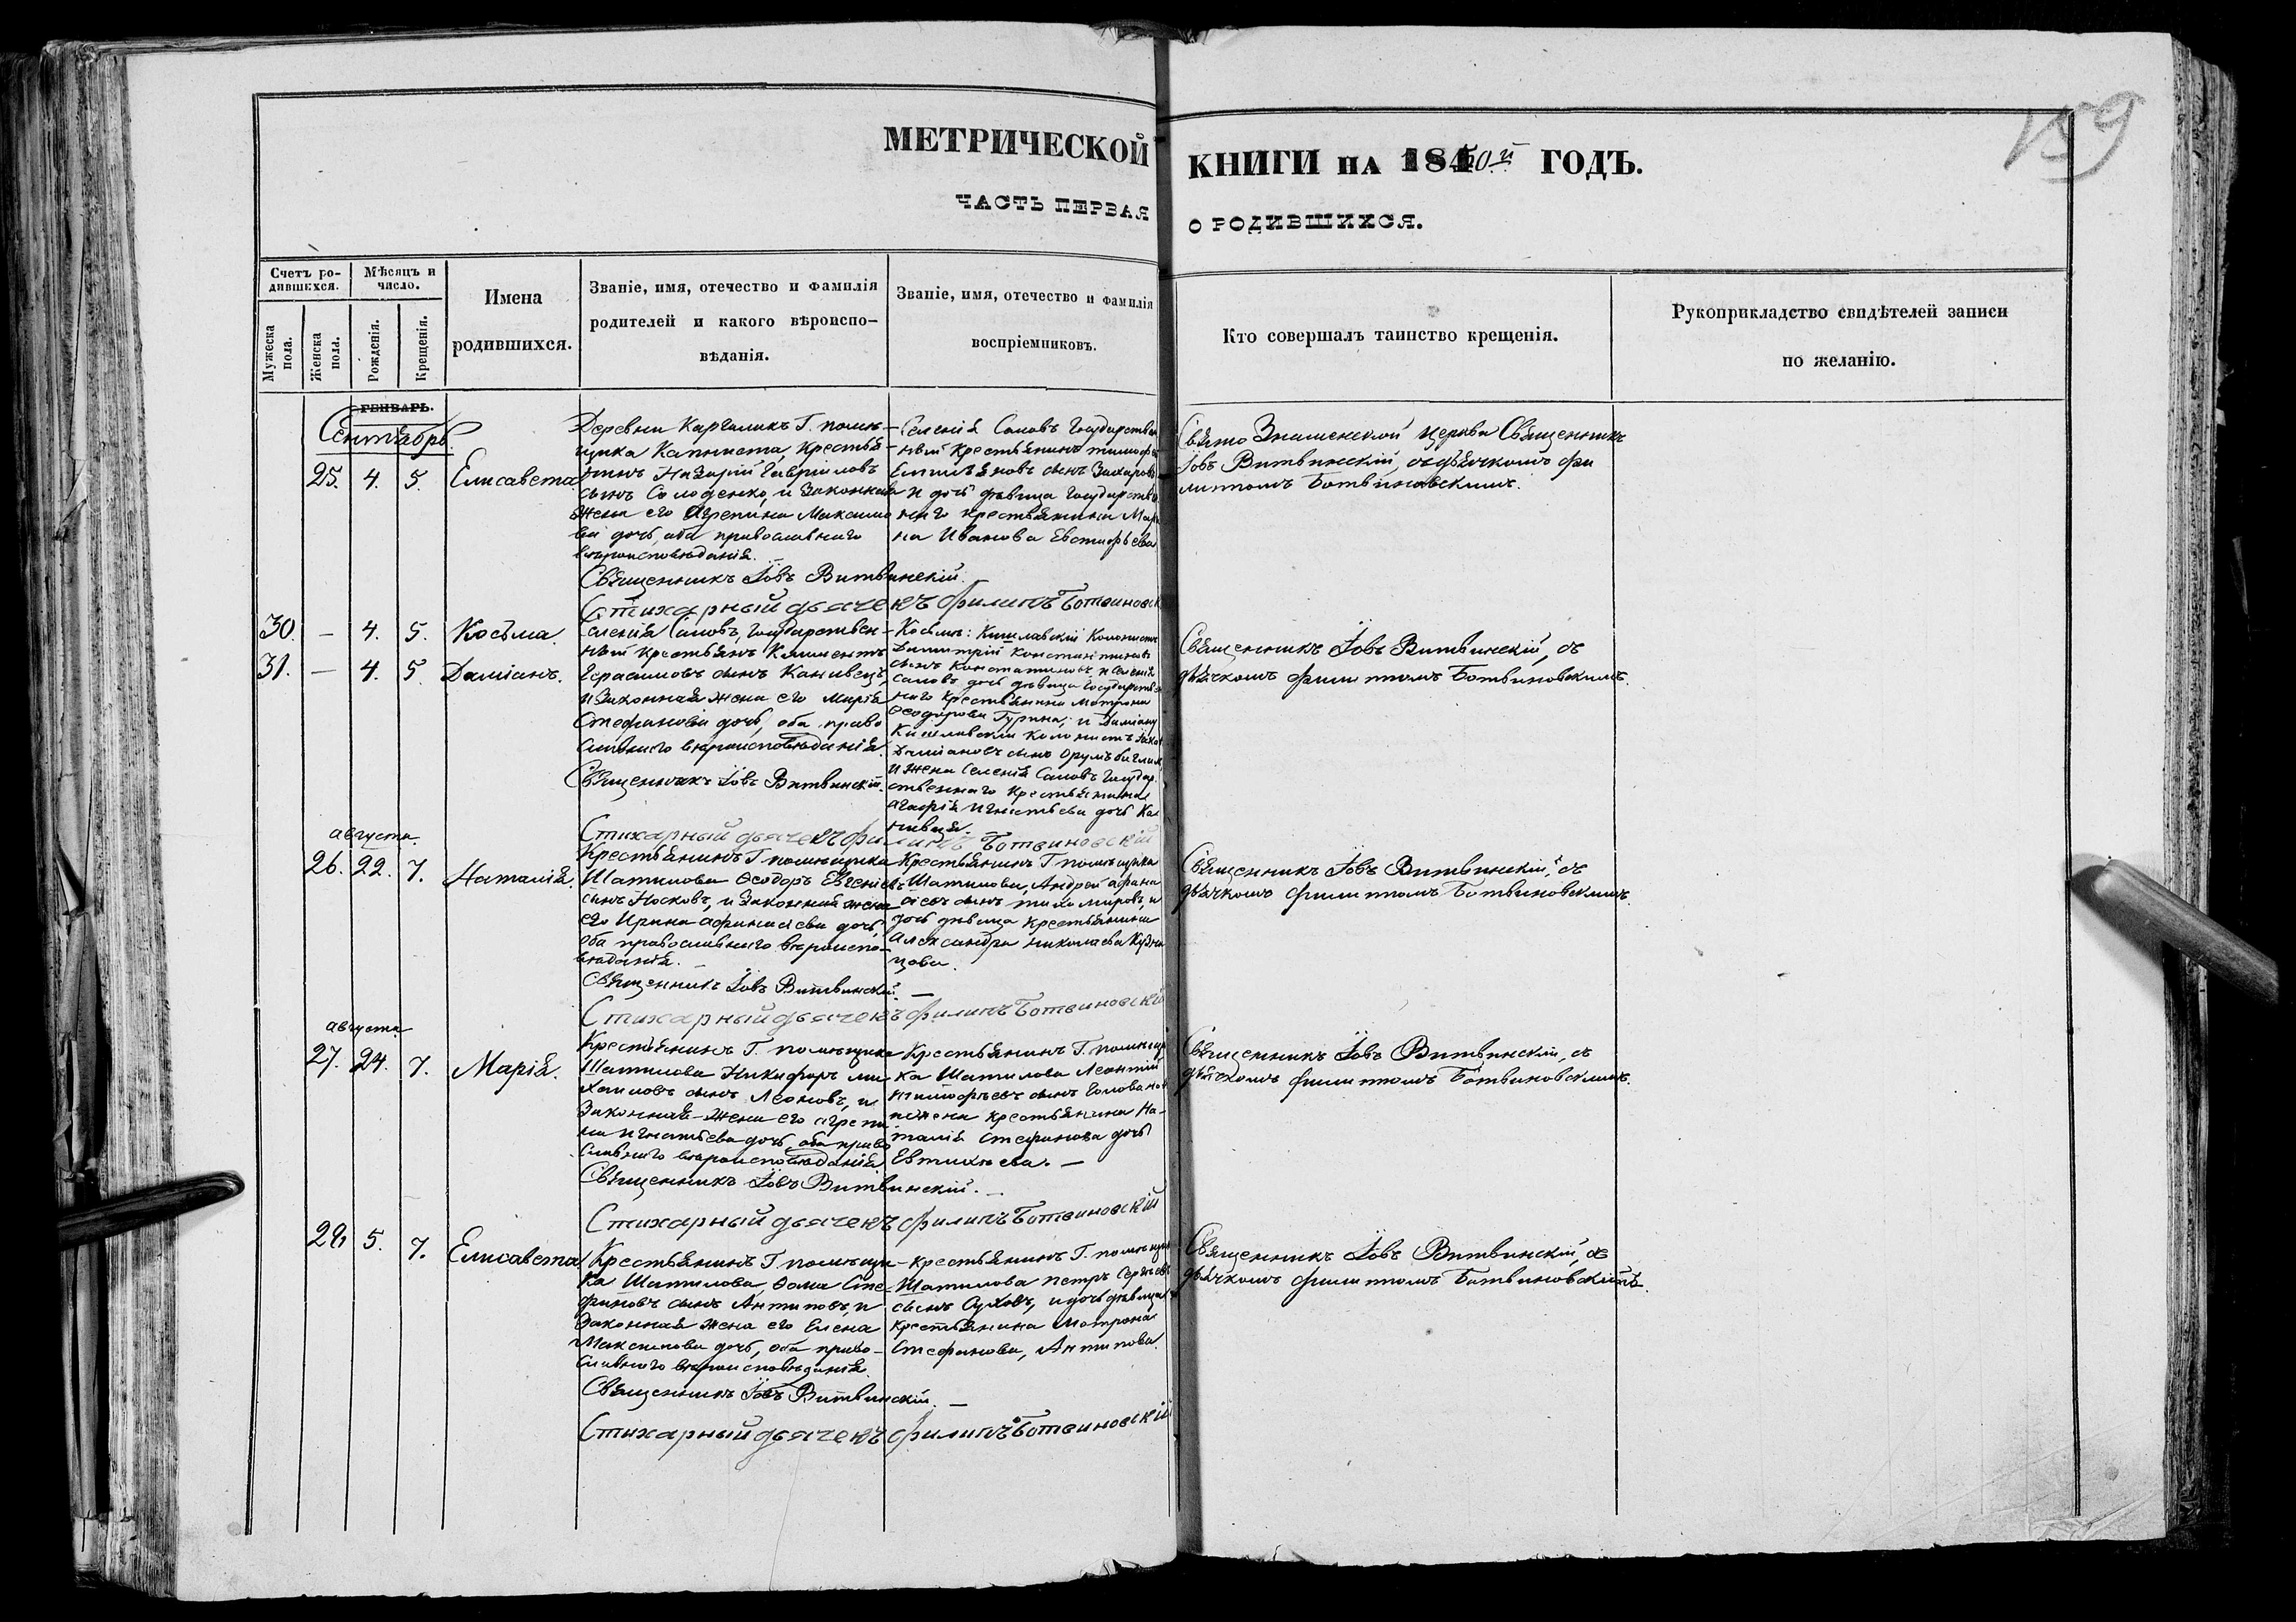 159
МЕТРИЧЕСКОЙ КНИГИ на 1850й ГОДЪ.
ЧАСТЬ ПЕРВАЯ О РОДИВШИХСЯ.
Счетъ родившихся.
Мужеска пола.
Женска пола.
Мѣсяцъ и число.
Рожденія.
Крещенія.
Имена
родившихся.
Званіе, имя, отечество и фамилія
родителей и какого вѣроиспо-
вѣданія.
Званіе, имя, отечество и фамилія
воспріемниковъ.
Кто совершалъ таинство крещенія.
Рукоприкладство свидѣтелей записи
по желанію.
ГЕНВАРЬ.
Сентябрь
25. 4. 5. Елисавета
Деревни Каргаликъ Г. помѣ-
щика Капниста, Крестья
нинъ Назарій Гавріловъ
сынъ Солоденко, и Законная
жена его Агрепина Максимо
ва дочь, оба православнаго
вѣроисповѣданія.
Священникъ Іовъ Витвинскій.
Стихарный дьячекъ Филипъ Ботвиновск
Селенія Саловъ Государствен
ный Крестьянинъ тимофей
Емильяновъ сынъ Захаровъ
и дочь дѣвица Государствен
наго крестьянина Мари
на Иванова Евстафьева
Свято Знаменской Церкви Священникъ
Іовъ Витвинскій, съ дьячкомъ Фи
липпомъ Ботвиновскимъ.
30. — 4. 5. Косьма.
31. — 4. 5. Даміанъ.
Селенія Саловъ, Государствен-
ный крестьянъ Климентъ
Герасимовъ сынъ Канивецъ
и Законная жена его Марія
Стефанова дочь, оба право
славнаго вѣроисповѣданія
Священникъ Іовъ Витвинскій.
Стихарный дьячекъ Филипъ Ботвиновскій
Косьмы: Кишлавскій Колонистъ
Димитрій Константиновъ
сынъ Константиновъ и Селенія
Саловъ дочь дѣвица Государствен
наго Крестьянина Матрона
Ѳеодорова Гурина; и Даміану
Кишлавскій Колонистъ
Даміановъ сынъ
и жена Селенія Саловъ Государ
ственнаго Крестьянина
Агафія Игнатьева дочь Ка
нивца.
Священникъ Іовъ Витвинскій, съ
дьячкомъ Филиппомъ Ботвиновскимъ.
августа.
26. 22. 7. Наталія.
Крестьянинъ Г. помѣщика
Шатилова Ѳеодоръ Евгеніевъ
сынъ Носковъ, и Законная жена
его Ирина Афанасіева дочь,
оба православнаго вѣроиспо-
вѣданія.
Священникъ Іовъ Витвинскій. —
Стихарный дьячекъ Филипъ Ботвиновскій
Крестьянинъ Г. помѣщика
Шатилова, Андрей Афана
сіевъ сынъ тихомировъ, и
дочь дѣвица крестьянина
Александра Николаева Кузне
цова.
Священникъ Іовъ Витвинскій, съ
дьячкомъ Филиппомъ Ботвиновскимъ.
августа
27. 24. 7. Марія.
Крестьянинъ Г. помѣщика
Шатилова Никифоръ ми
хаиловъ сынъ Леоновъ, и
Законная жена его Агрепи
на Игнатьева дочь, оба право
славнаго вѣроисповѣданія
Священникъ Іовъ Витвинскій. —
Стихарный дьячекъ Филипъ Ботвиновскій
Крестьянинъ Г. помѣщи
ка Шатилова Леонтій
тимофѣевъ сынъ Головановъ
и жена крестьянина На-
талія Стефанова дочь
Евтихѣева. —
Священникъ Іовъ Витвинскій, съ
дьячкомъ Филиппомъ Ботвиновскимъ.
28. 5. 7. Елисавета
Крестьянинъ Г. помѣщи-
ка Шатилова, Ѳома Сте-
фановъ сынъ Антиповъ, и
Законная жена его Елена
Максимова дочь, оба право-
славнаго вѣроисповѣданія.
Священникъ Іовъ Витвинскій. —
Стихарный дьячекъ Филипъ Ботвиновскій
Крестьянинъ Г. помѣщика
Шатилова петръ Сергѣевъ
сынъ Суховъ, и дочь дѣвица
крестьянина Матрона
Стефанова, Антипова.
Священникъ Іовъ Витвинскій, съ
дьячкомъ Филиппомъ Ботвиновскимъ.